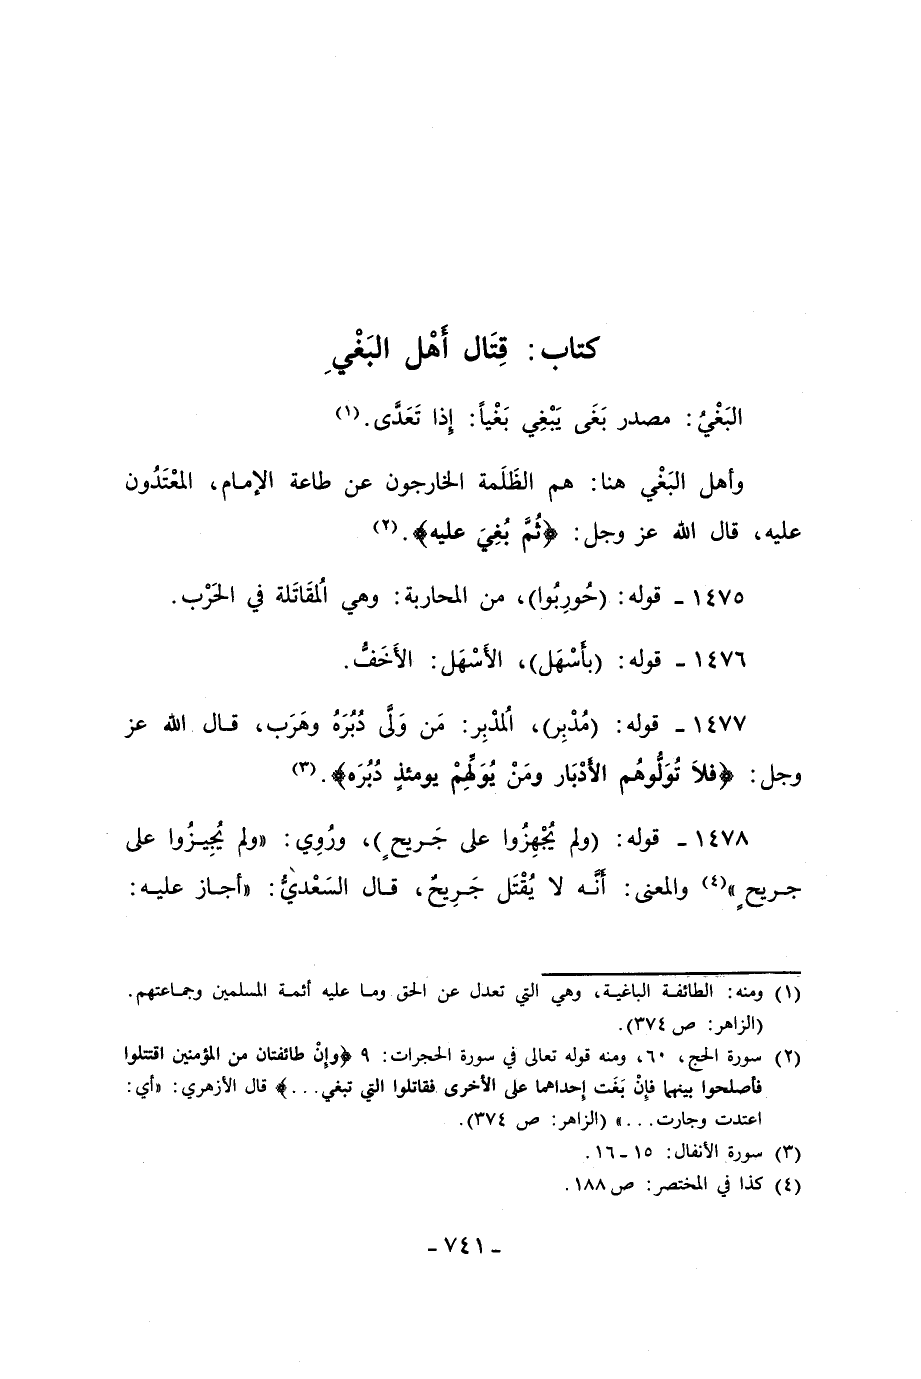 كتاب: قِتَال أَهْل البَغْيِ
البَغْيُ: مصدر بَغَى يَبْغِي بَغْياً: إِذا تَعَدَّى.(١)
وأهل البَغْي هنا: هم الظَلَمة الخارجون عن طاعة الإمام، المعْتَدُون
عليه، قال الله عز وجل: ﴿ثُمَّ بُغِيَ عليه﴾.(٢)
١٤٧٥ ـ قوله: (حُورِبُوا)، من المحاربة: وهي اُلمقَاتَلة في الحَرْب.
١٤٧٦ ـ قوله: (بأَسْهَل)، الأَسْهَل: الأَخَفُّ.
١٤٧٧ ـ قوله: (مُدْبِر)، اُلمدْبِر: مَن وَلَّى دُبُرَهُ وهَرَب، قال الله عز
وجل: ﴿فلاَ تُوَلُّوهُم الأَدْبَار ومَنْ يُوَلِّهِمْ يومئذٍ دُبُرَه﴾.(٣)
١٤٧٨ ـ قوله: (ولم يُجْهِزُوا على جَريحٍ)، ورُوِي: «ولم يُجِيزُوا على
جريحٍ»(٤) والمعنى: أَنَّه لا يُقْتَل جَرِيحٌ، قال السَعْديُّ: «أجاز عليه:
(١) ومنه: الطائفة الباغية، وهي التي تعدل عن الحق وما عليه أئمة المسلمين وجماعتهم.
(الزاهر: ص ٣٧٤).
(٢) سورة الحج، ٦٠، ومنه قوله تعالى في سورة الحجرات: ٩ ﴿وإِنْ طائفتان من المؤمنين اقتتلوا
فأصلحوا بينهما فإِنْ بَغَت إحداهما على الأخرى فقاتلوا التي تبغي...﴾ قال الأزهري: «أي:
اعتدت وجارت...» (الزاهر: ص ٣٧٤).
(٣) سورة الأنفال: ١٥ ـ ١٦.
(٤) كذا في المختصر: ص ١٨٨.
ـ ٧٤١ ـ